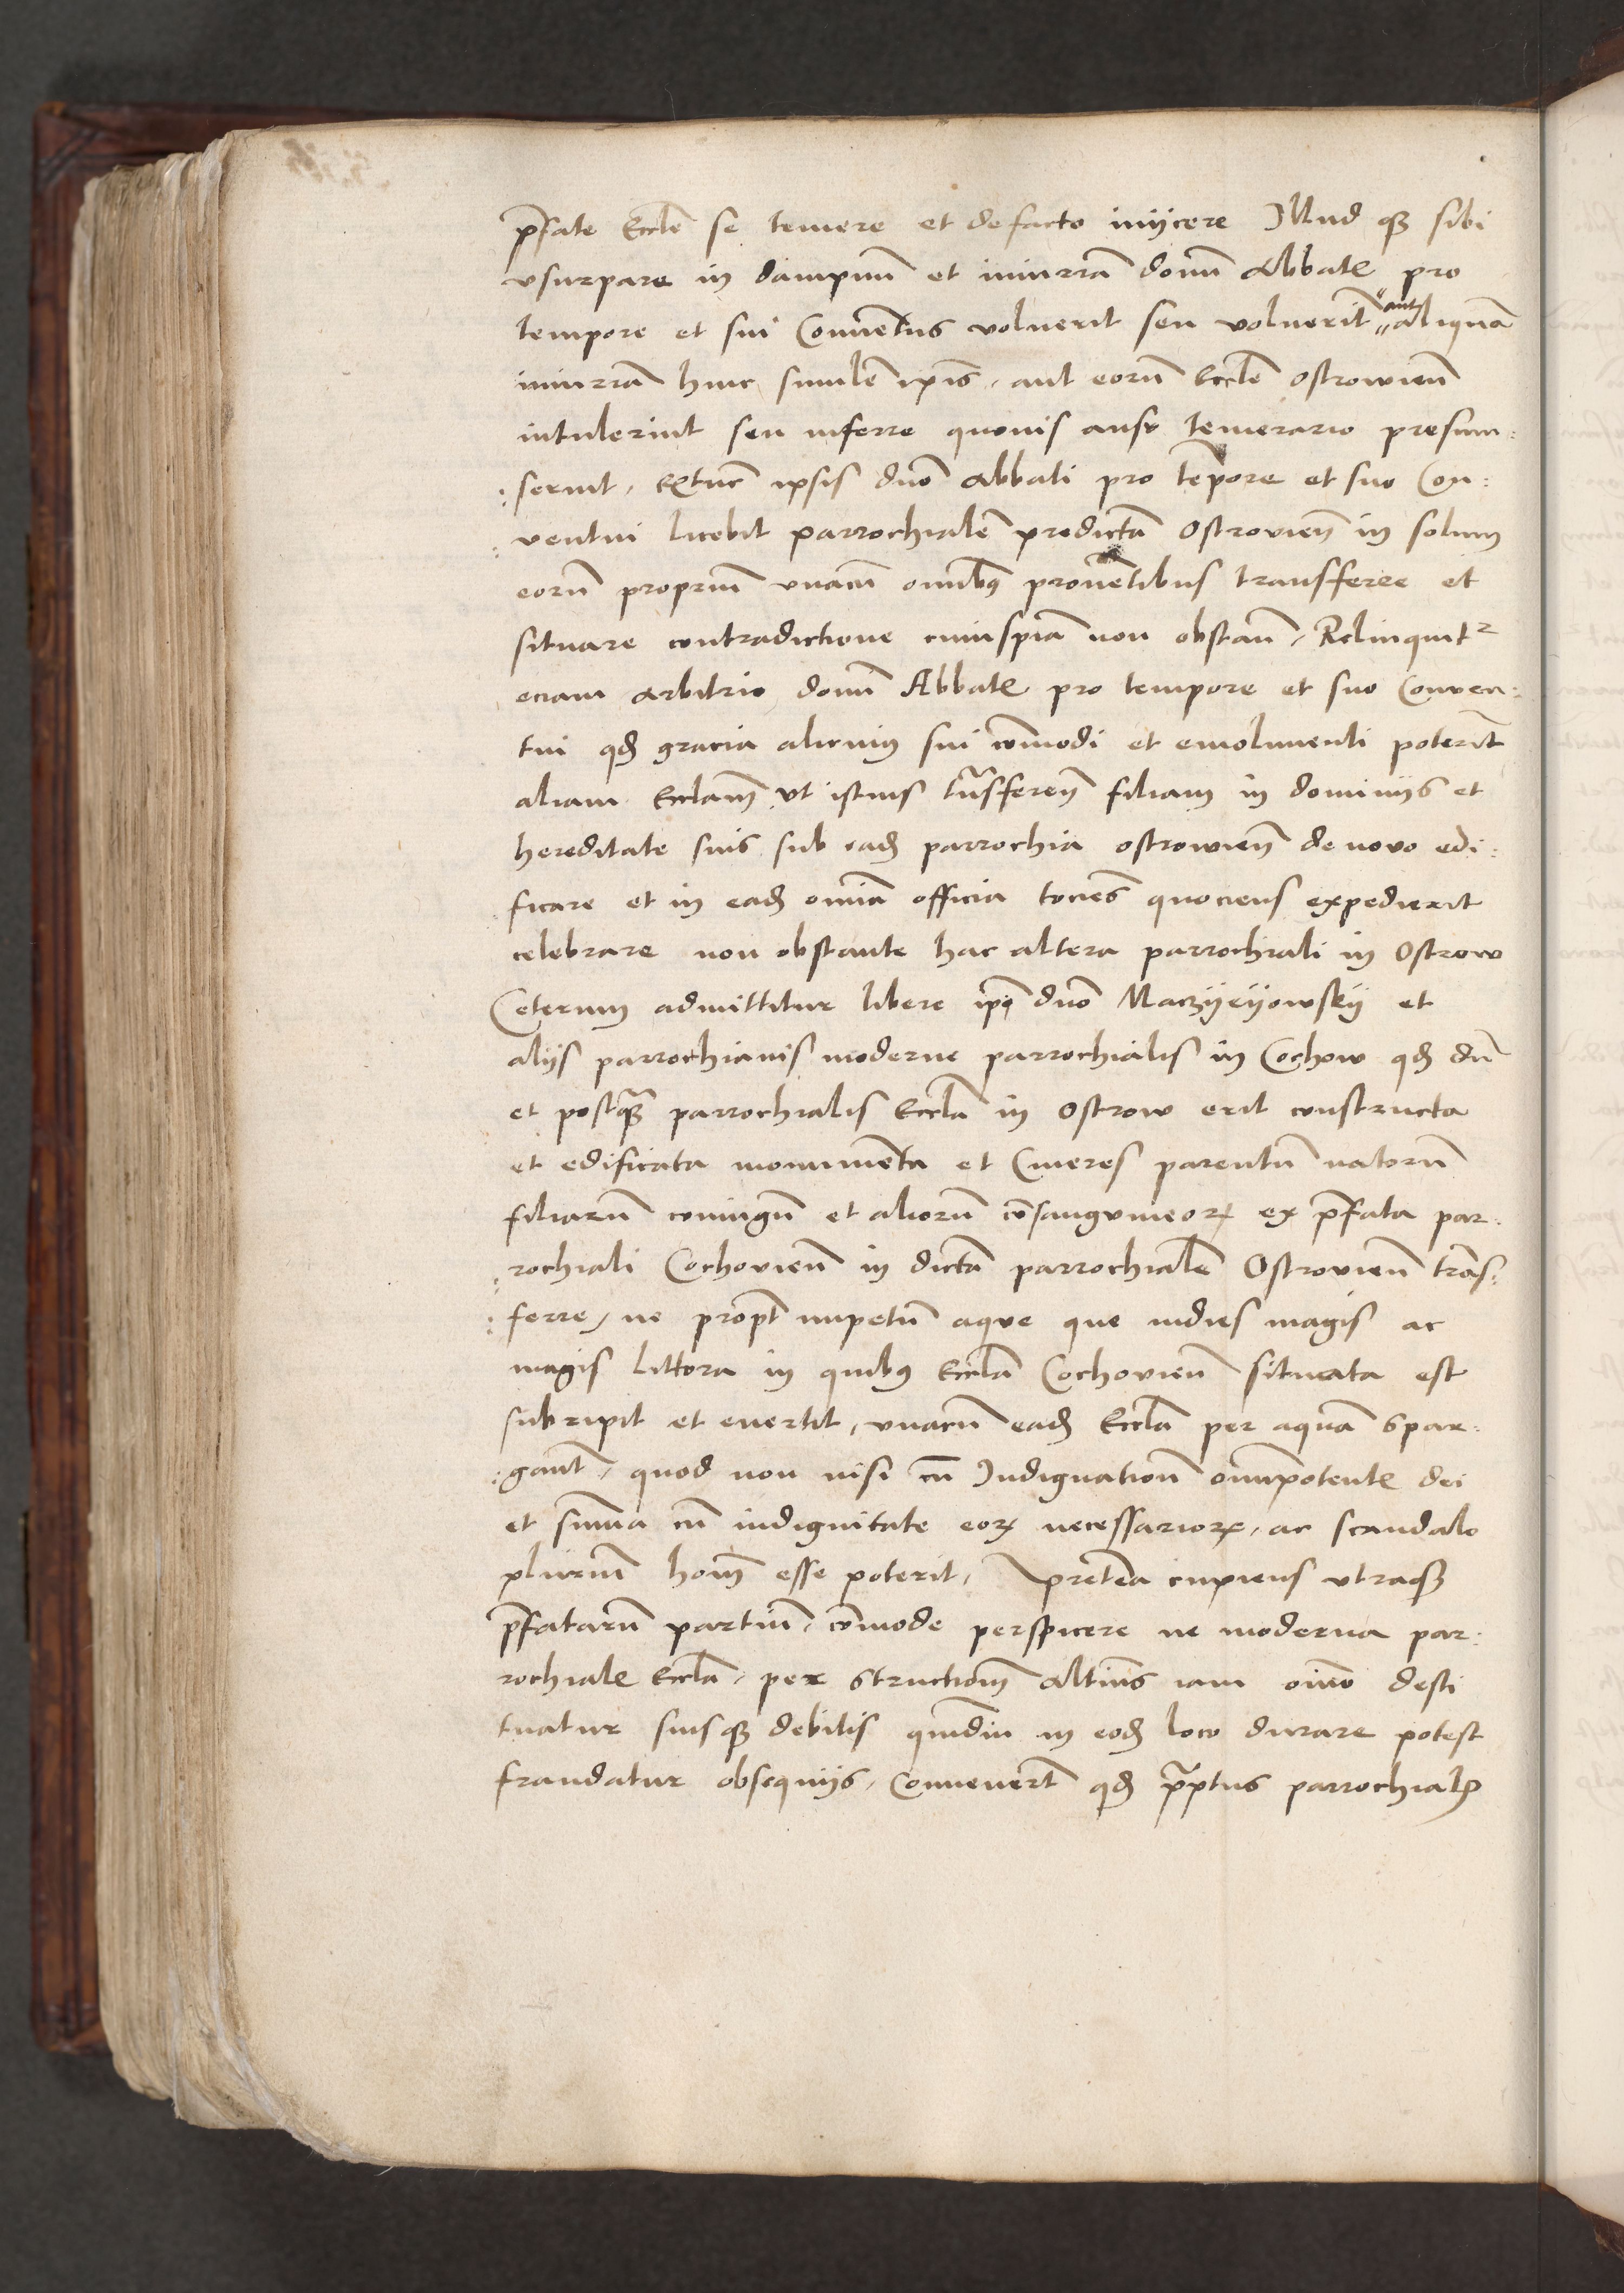 p̄fate Eccle͞ se temere et defacto inijcere Illud qꝫ sibi
vsurpare in dampnu͞ et iniuria͞ domi͞ Abbatꝭ pro
tempore et sui Conue͞tus voluerit seu voluerit aut aliqua͞
iniuria͞ huic simile͞ ip̄is, aut eoru͞ Eccle͞ ostrowien͞
intulerint seu inferre quouis ausu temerario presum:
:serint, Extunc ipsis dn͞o Abbati pro te͞pore et suo Con:
:uentui licebit parrochiale͞ predicta͞ Ostrovien͞ in solum
eoru͞ propriu͞ vnacu͞ omnibꝰ proue͞tibus transferre et
situare contradictione cuiuspia͞ non obstan͞, Relinquit͛
eciam arbitrio domi͞ Abbatꝭ pro tempore et suo Conuen:
tui qd͞ gracia alicuiꝰ sui co͞modi et emolumenti poterit
aliam Eccliam͞ vt istius tra͞sferen͞ filiam in dominijs et
hereditate suis sub ead͞ parrochia ostrowien͞ de novo edi:
ficare et in ead͞ om͞ia officia tocie͞s quociens expedierit
celebrare non obstante hac altera parrochiali in Ostrow
Ceterum admittitur libere ip̄i dn͞o Maczijeijowskij et
alijs parrochianis moderne parrochialis in Cochow qd͞ du͞
et postqua͞ parrochialis Eccla͞ in Ostrow erit constructa
et edificata monume͞ta et Cineres parentu͞ natoru͞
filiaru͞ coniugu͞ et alioru͞ co͞sanguineoꝝ ex p̄fata par:
rochiali Cochovien͞ in dicta͞ parrochiale͞ Ostrovien͞ tra͞s:
:ferre, ne propt͞ impetu͞ aque que indies magis ac
magis littora in quibꝰ Eccla͞ Cochovien͞ situata est
subripit et euertit, vnacu͞ ead͞ Eccla͞ per aqua͞ spar:
:gant͞, quod non nisi cu͞ Indignation͞ omnipotentꝭ dei
et su͞ma cu͞ indignitate eoꝝ necessarioꝝ, ac scandalo
plurimu͞ hoim͞ esse poterit, Pretere͞a cupiens vtraqꝫ
p̄fataru͞ partiu͞, co͞mode perspicere ne moderna par:
rochialꝭ Eccla͞, per structiom͞ altius iam oi͞no desti
tuatur suisqꝫ debitis qua͞diu in eod͞ loco durare potest
fraudatur obsequijs, Conuenert͞ qd͞ p̄sc̄ptus parrochialꝭ